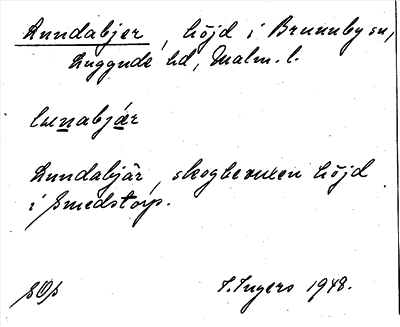 Lundabjer, höjd i Brunnby sn,
Luggude hd, Malm. l.
lunabjár
Lundabjär, skogbevuxen höjd
i Smedstorp.
SOs
I. Ingers 1948.